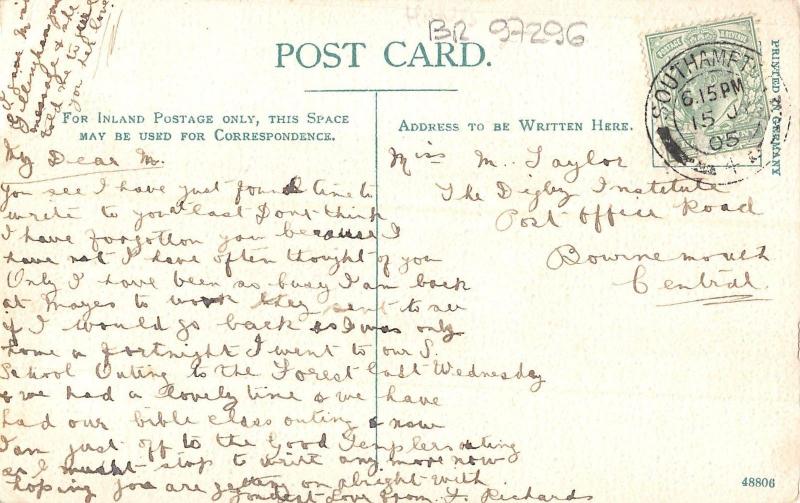 BR 97296
POST CARD.
FOR INLAND POSTAGE ONLY, THIS SPACE
MAY BE USED FOR CORRESPONDENCE.
ADDRESS TO BE WRITTEN HERE.
PRINTED IN GERMANY
SOUTHAMPT
6.15 PM
15 J
05
Miss M. Taylor
The Digby Institute
Post Office Road
Bournemouth
Central.
My Dear M.
You see I have just found time to
write to you at last Dont think
I have forgotton you because I
have not I have often thought of you
Only I have been so busy I am back
at Mayes to work they sent to see
if I would go back as I was only
home a fortnight I went to our S.
School Outing to the Forest last Wednesday
& we had a lovely time & we have
had our bible class outing & now
I am just off to the Good Templers outing
so I must stop to write any more now
hoping you are getting on alright with
fondest Love from F. Richards
Gillingham
message & she
told me to
you her love
48806